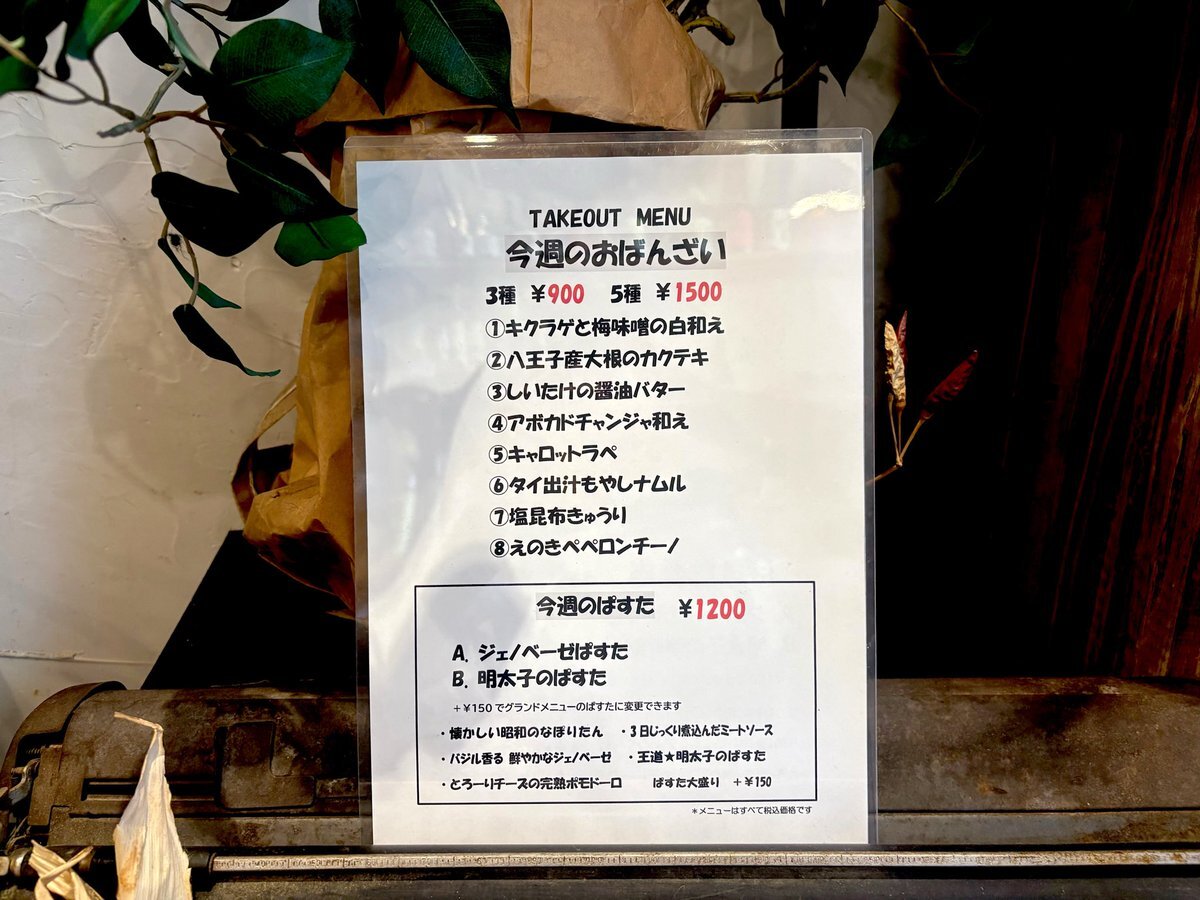 TAKEOUT MENU
今週のおばんざい
3種 ¥900 5種 ¥1500
①キクラゲと梅味噌の白和え
②八王子産大根のカクテキ
③しいたけの醤油バター
④アボカドチャンジャ和え
⑤キャロットラペ
⑥タイ出汁もやしナムル
⑦塩昆布きゅうり
⑧えのきペペロンチーノ
今週のぱすた ¥1200
A. ジェノベーゼぱすた
B. 明太子のぱすた
+¥150 でグランドメニューのぱすたに変更できます
・懐かしい昭和のなぽりたん ・3日じっくり煮込んだミートソース
・バジル香る 鮮やかなジェノベーゼ ・王道★明太子のぱすた
・とろーりチーズの完熟ポモドーロ ぱすた大盛り +¥150
*メニューはすべて税込価格です